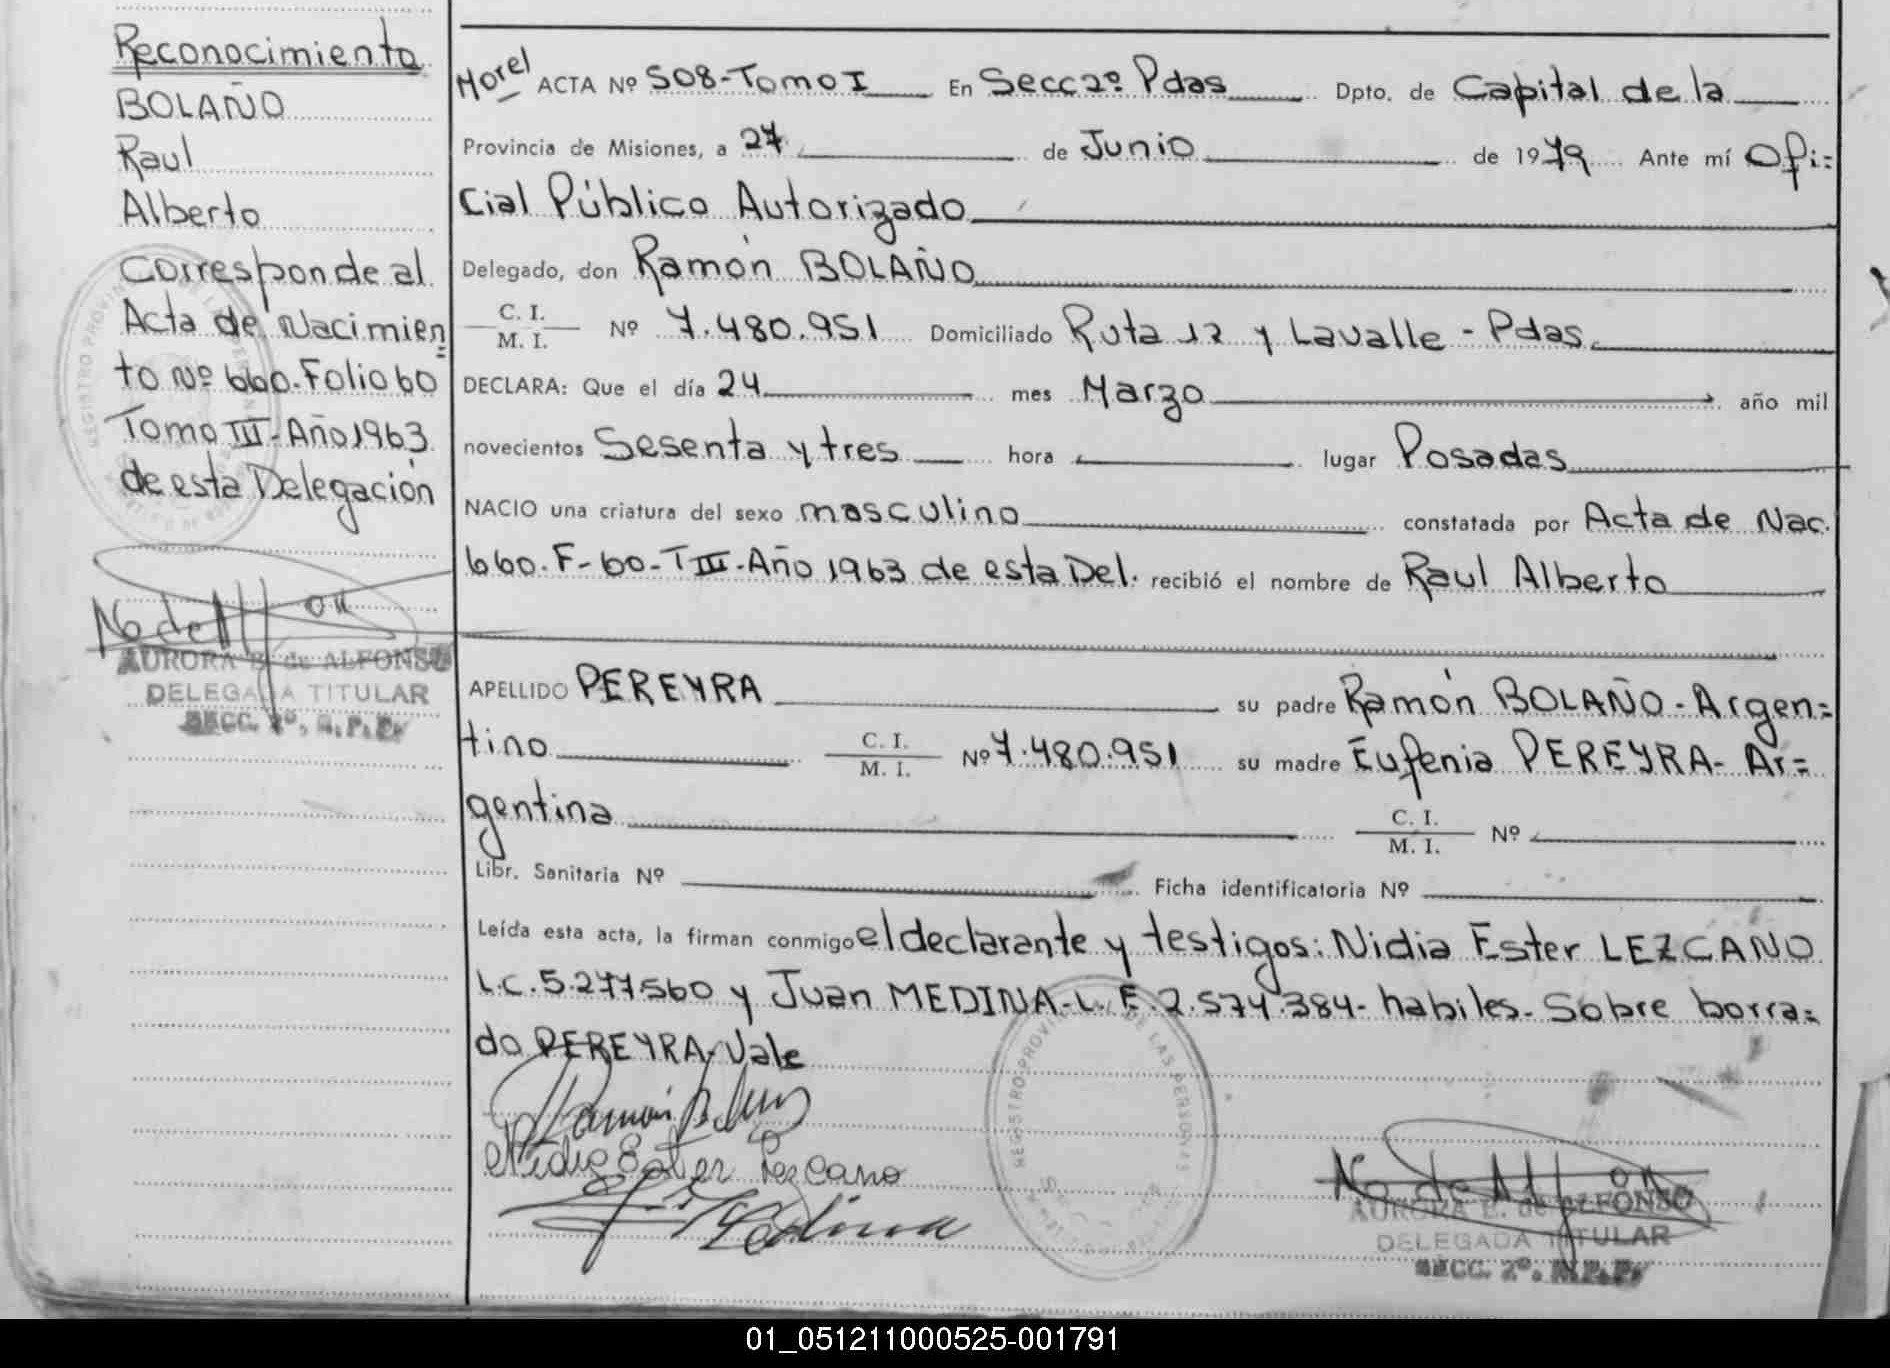 Reconocimiento
BOLAÑO
Raul
Alberto
Corresponde al
Acta de Nacimien=
to Nº 660. Folio 60
Tomo III - Año 1963
de esta Delegación
AURORA E. de ALFONSO
DELEGADA TITULAR
SECC. 2º, R.P.P.
Morel ACTA Nº 508-Tomo I En Secc 2º Pdas Dpto. de Capital de la
Provincia de Misiones, a 27 de Junio de 1979 Ante mí Ofi=
cial Público Autorizado
Delegado, don Ramón BOLAÑO
C. I.
M. I. Nº 7.480.951 Domiciliado Ruta 12 y Lavalle - Pdas.
DECLARA: Que el día 24 mes Marzo año mil
novecientos Sesenta y tres hora lugar Posadas
NACIO una criatura del sexo masculino constatada por Acta de Nac.
660. F-60-T III. Año 1963 de esta Del. recibió el nombre de Raul Alberto
APELLIDO PEREYRA su padre Ramón BOLAÑO - Argen=
tino C. I. M. I. Nº 7.480.951 su madre Eufenia PEREYRA - Ar=
gentina C. I. M. I. Nº
Libr. Sanitaria Nº Ficha identificatoria Nº
Leída esta acta, la firman conmigo el declarante y testigos: Nidia Ester LEZCANO
L.C. 5.277560 y Juan MEDINA - L. E. 2.574.384 - habiles. Sobre borra=
do PEREYRA - Vale
Nidia Ester Lezcano
REGISTRO PROVINCIAL DE LAS PERSONAS
AURORA E. de ALFONSO
DELEGADA TITULAR
SECC. 2º, R.P.P.
01_051211000525-001791